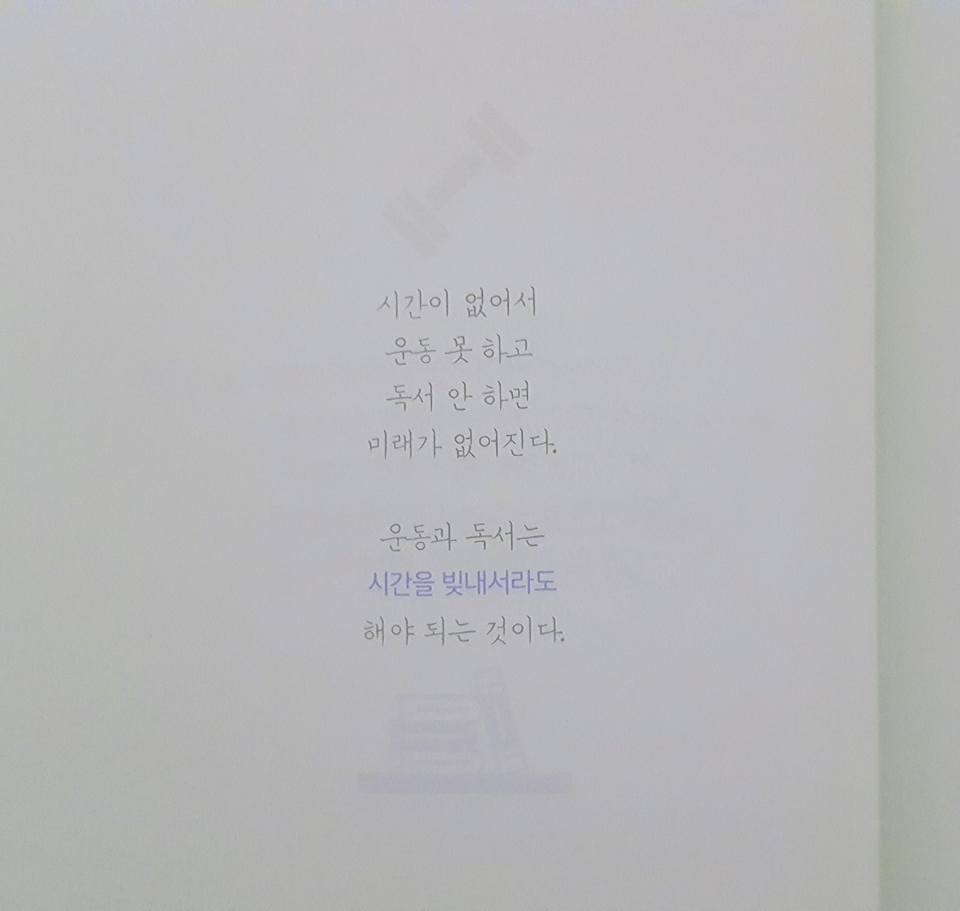 시간이 없어서
운동 못 하고
독서 안 하면
미래가 없어진다.
운동과 독서는
시간을 빚내서라도
해야 되는 것이다.